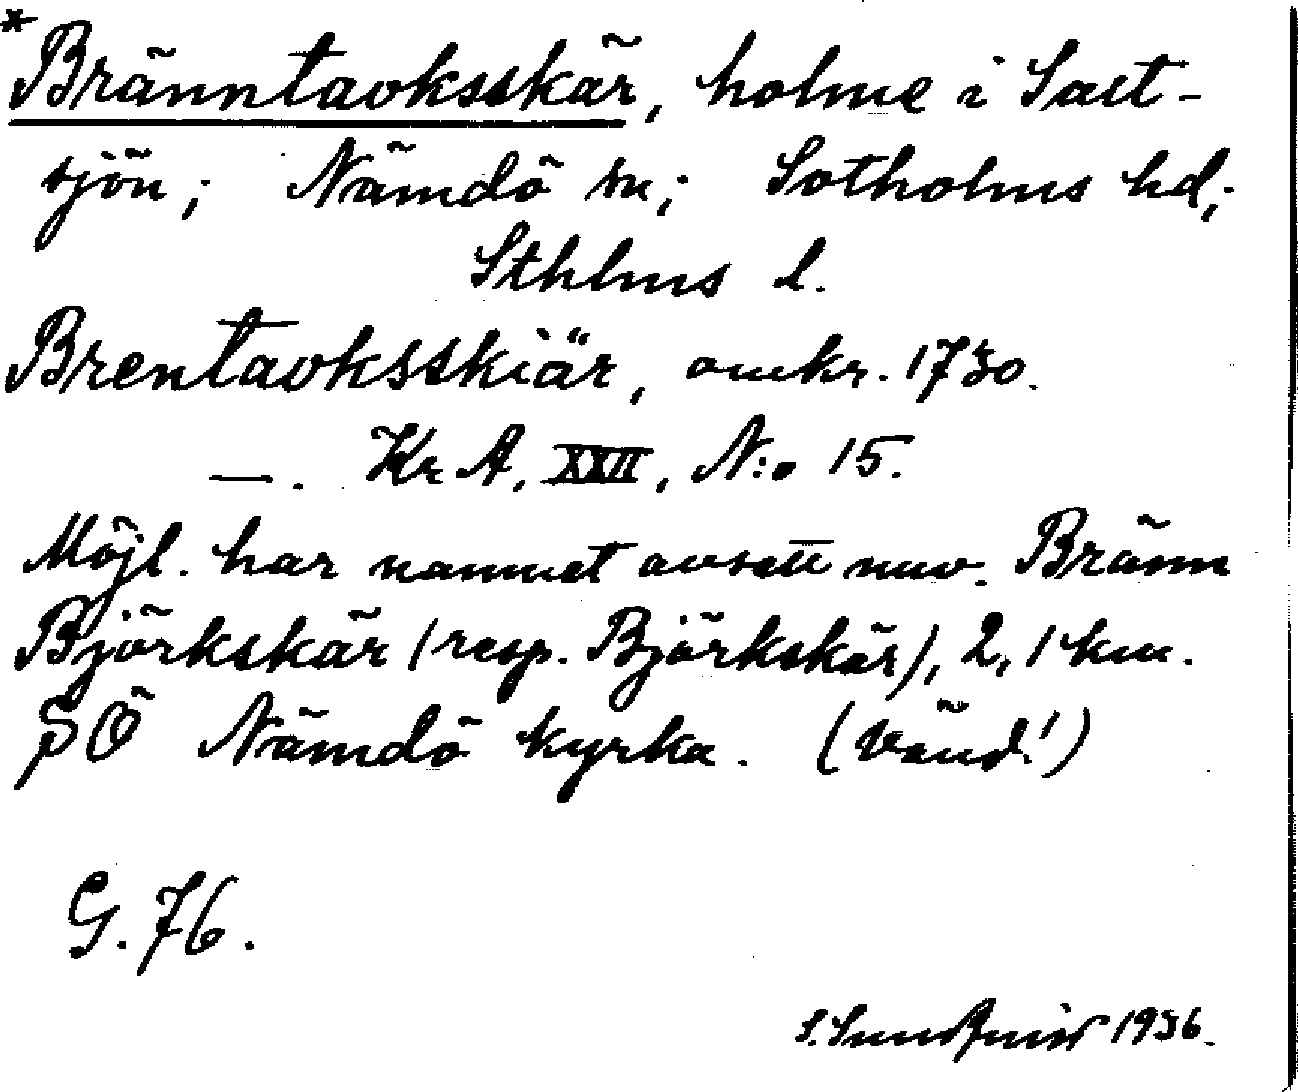 *Bränntavksskär, holme i Salt-
sjön; Nämdö sn; Sotholms hd;
Sthlms l.
Brentavksskiär, omkr. 1730.
—. Kr A, XXII, N:o 15.
Möjl. har namnet avsett nuv. Bränn
Björkskär (resp. Björkskär), 2,1 km.
SÖ Nämdö kyrka. (Vänd!)
G. 76.
S. 1936.